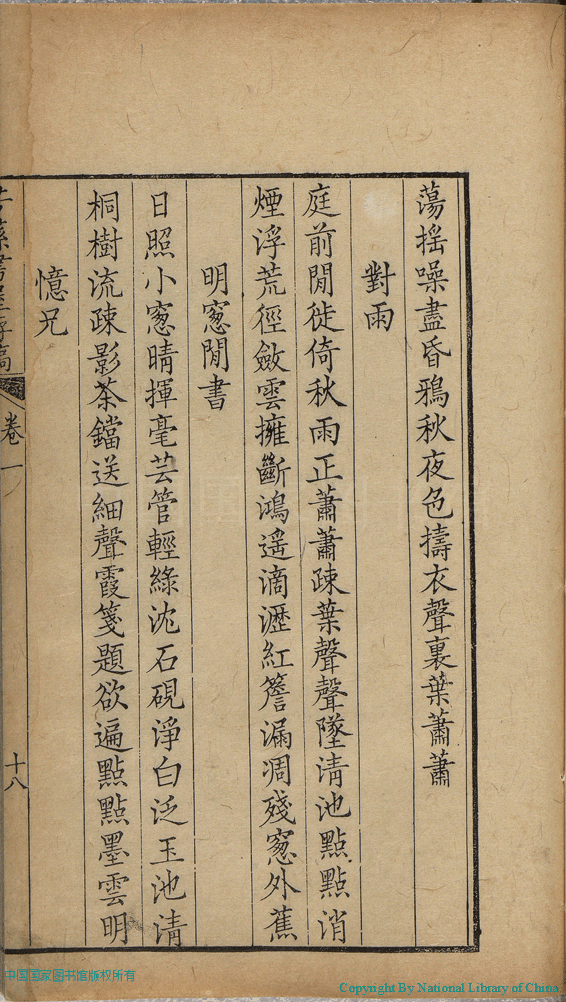 蕩揺噪盡昏鴉秋夜色擣衣聲裏葉蕭蕭
對雨
庭前閒徙倚秋雨正蕭蕭疎葉聲聲墜清池點點消
煙浮荒徑斂雲擁斷鴻遥滴瀝紅簷漏凋殘窻外蕉
明窻閒書
日照小窻晴揮毫芸管輕綠沈石硯淨白泛玉池清
桐樹流疎影茶鐺送細聲霞箋題欲遍點點墨雲明
憶兄
卷一
十八
中国国家图书馆版权所有
Copyright By National Library of China